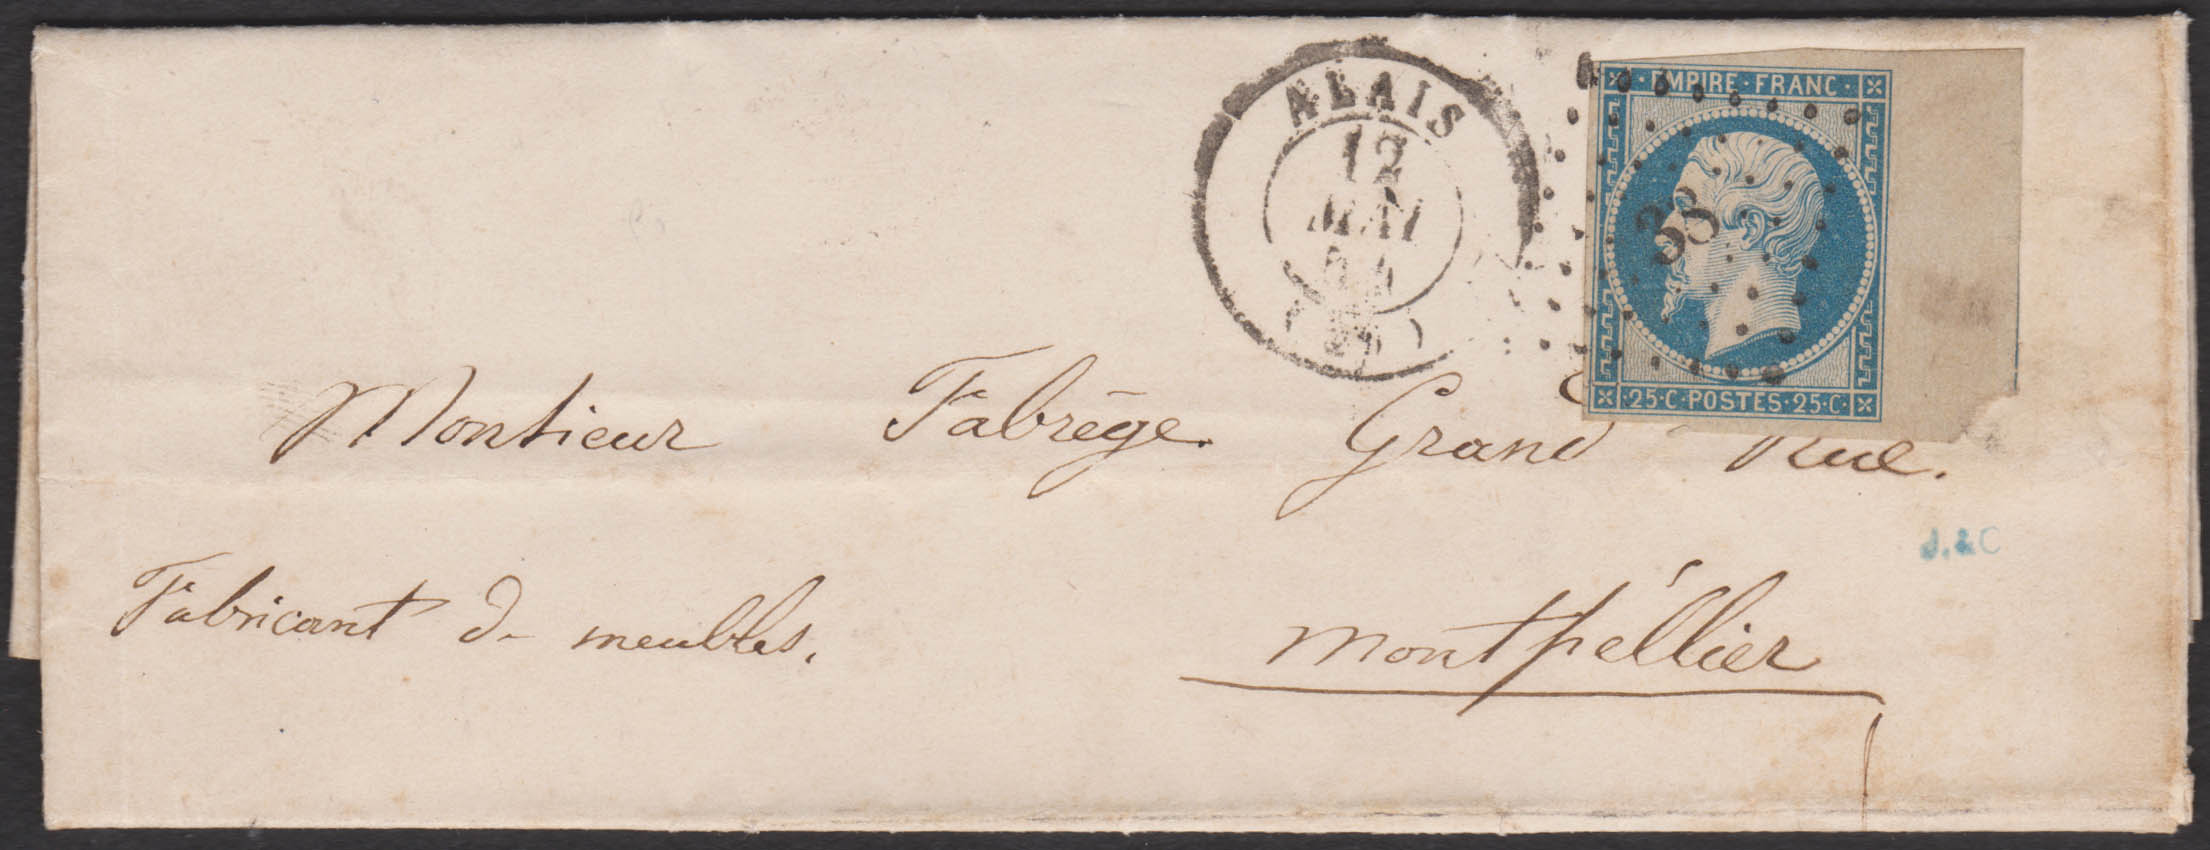 ALAIS
12
MAI
EMPIRE · FRANC ·
38
· 25 · C · POSTES · 25 · C ·
Monsieur Fabrège. Grand Rue.
Fabricant de meubles.
Montpéllier